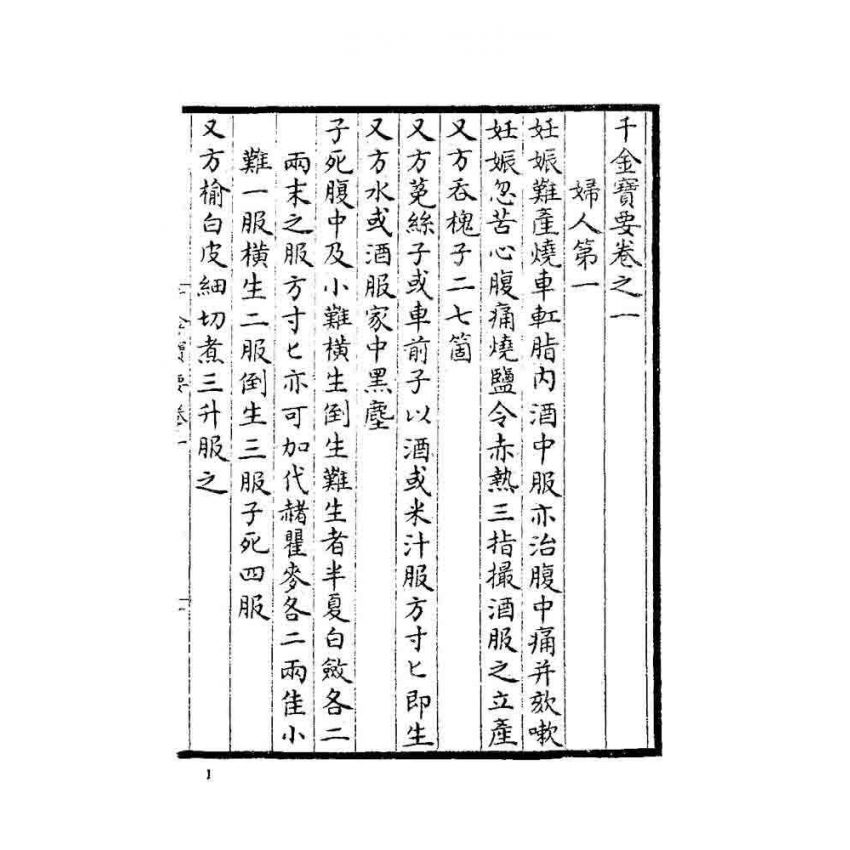 千金寶要卷之一
婦人第一
妊娠難產燒車軖脂內酒中服亦治腹中痛并欬嗽
妊娠忽苦心腹痛燒鹽令赤熱三指撮酒服之立產
又方吞槐子二七箇
又方菟絲子或車前子以酒或米汁服方寸匕即生
又方水或酒服家中黑塵
子死腹中及小難橫生倒生難生者半夏白斂各二
兩末之服方寸匕亦可加代赭瞿麥各二兩佳小
難一服橫生二服倒生三服子死四服
又方榆白皮細切煮三升服之
千金寶要卷一
一
1